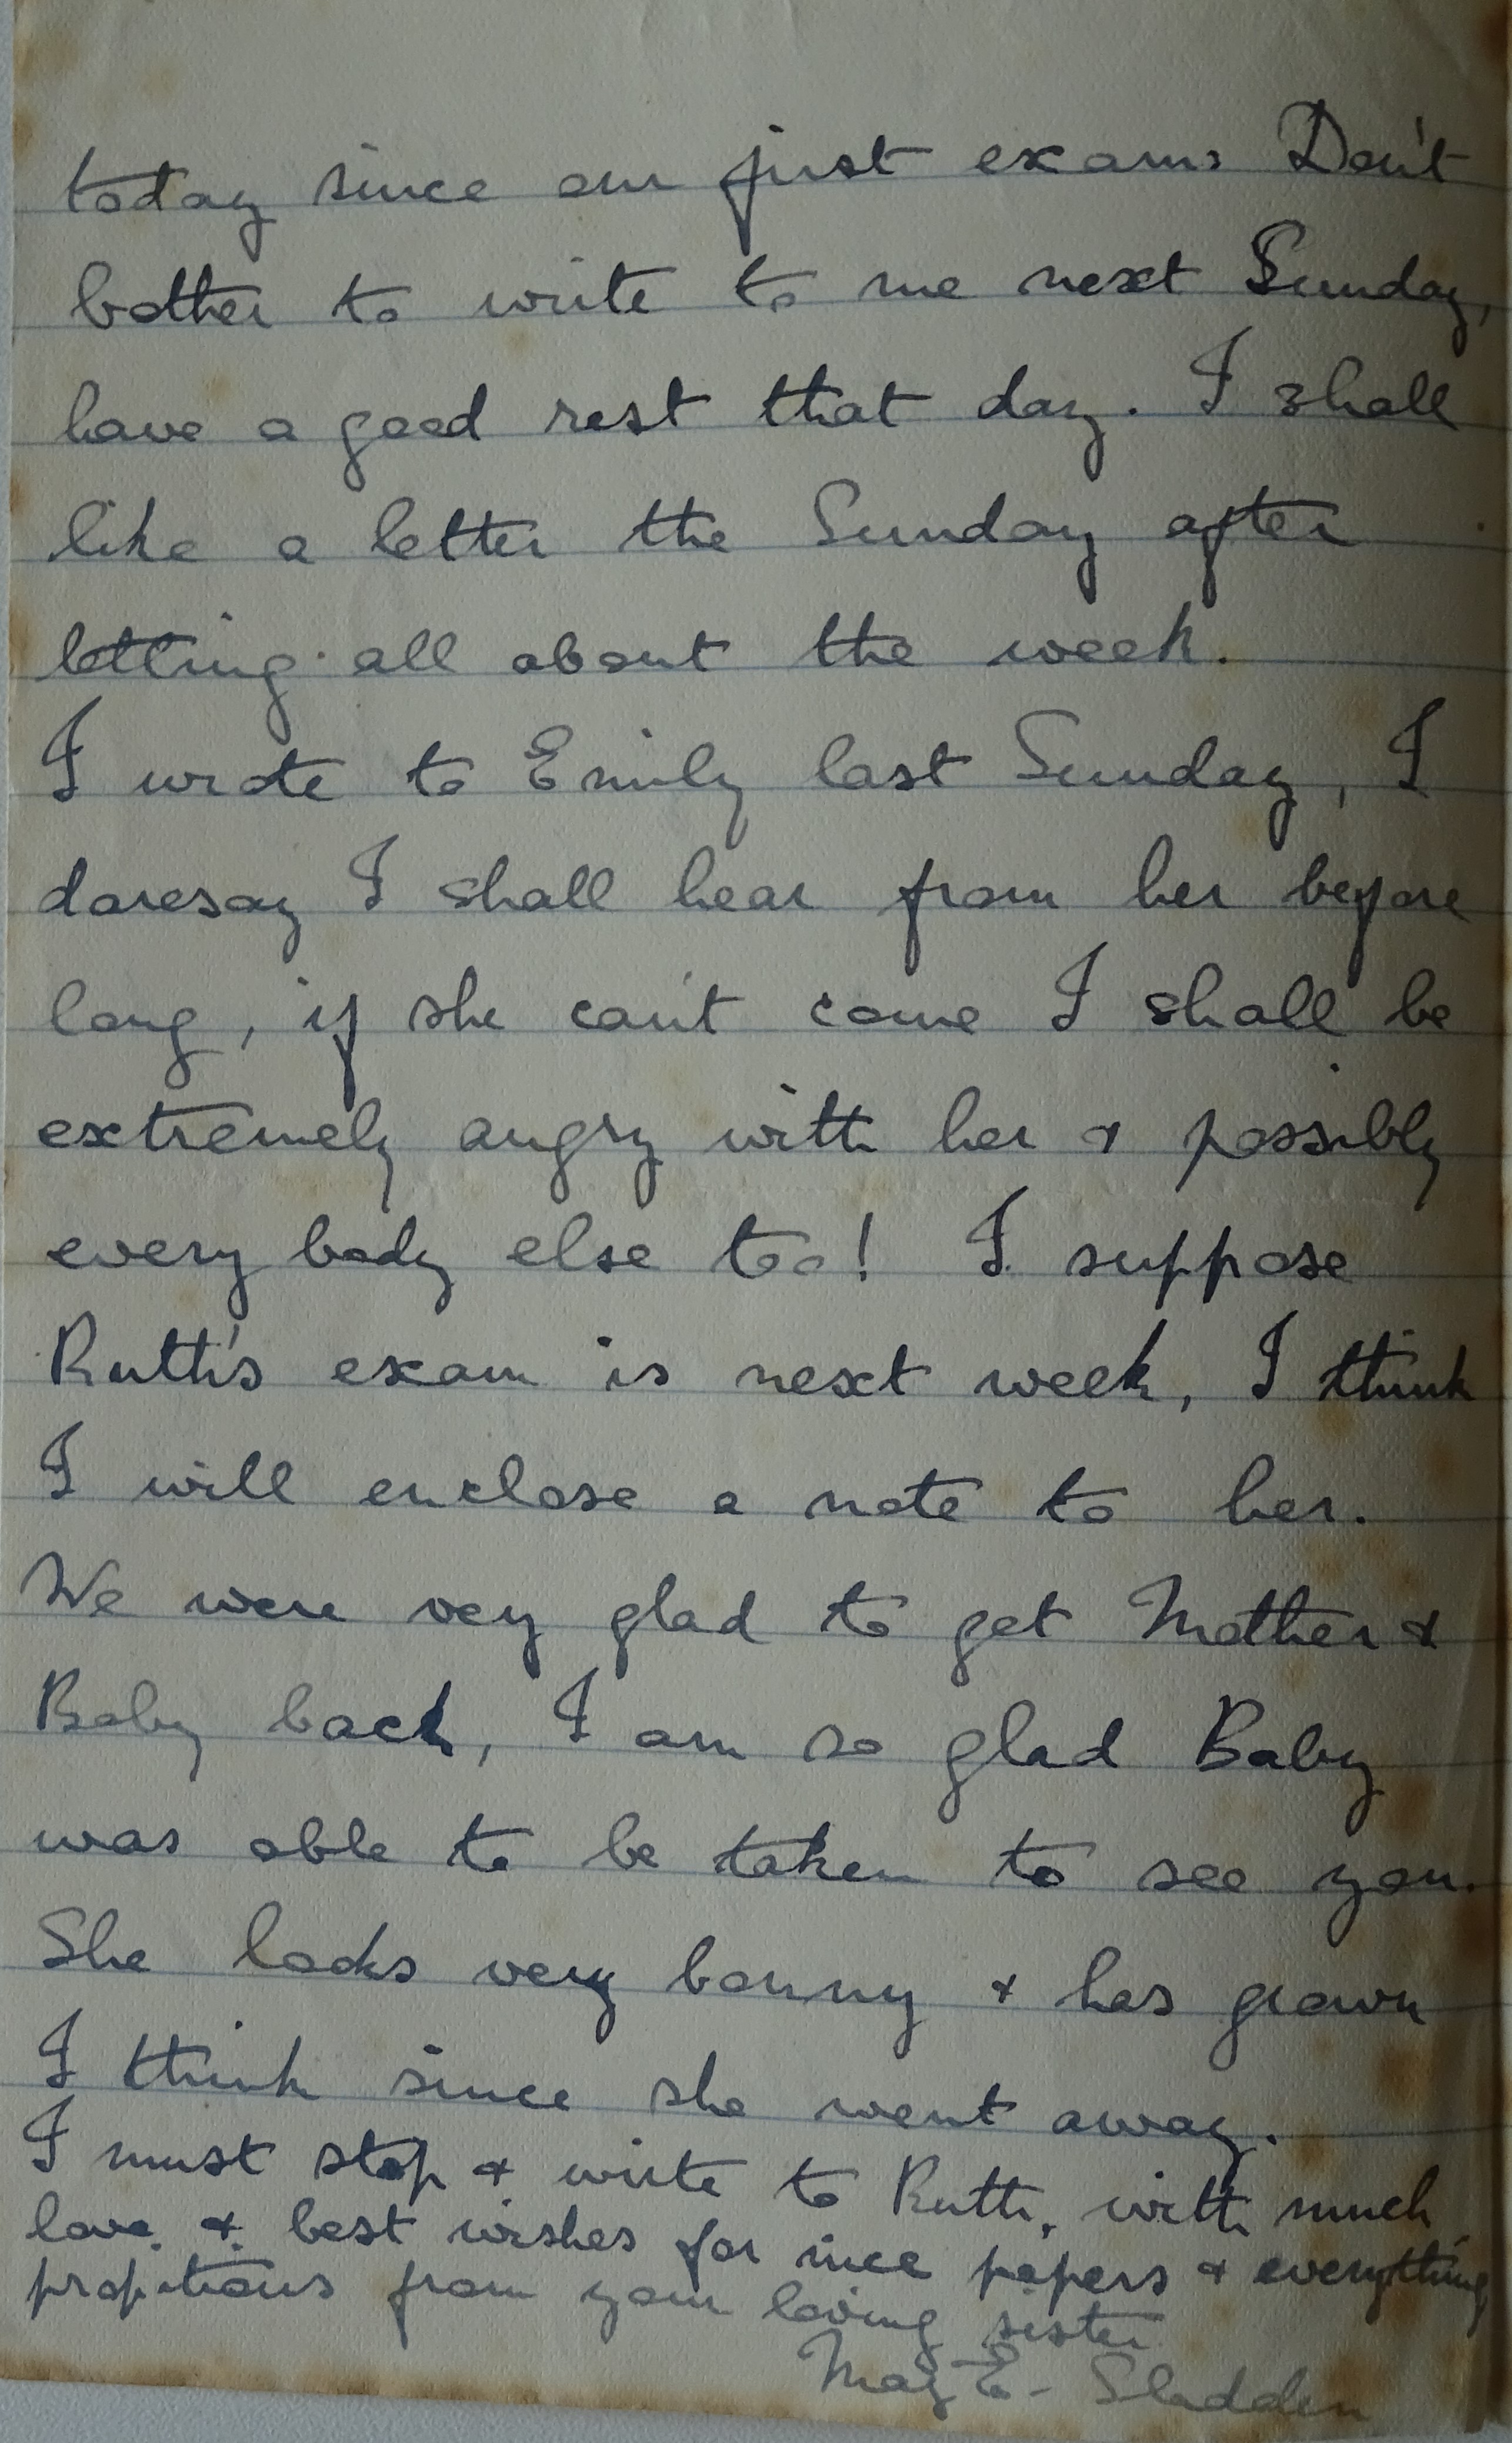 today since our first exams Don't
bother to write to me next Sunday,
have a good rest that day. I shall
like a letter the Sunday after
letting all about the week.
I wrote to Emily last Sunday, I
daresay I shall hear from her before
long, if she can't come I shall be
extremely angry with her & possibly
every body else too! I suppose
Ruth's exam is next week, I think
I will enclose a note to her.
We were very glad to get Mother &
Baby back, I am so glad Baby
was able to be taken to see you.
She looks very bonny & has grown
I think since she went away.
I must stop & write to Ruth, with much
love & best wishes for nice papers & everything
propitious from your loving sister
May E. Sladden